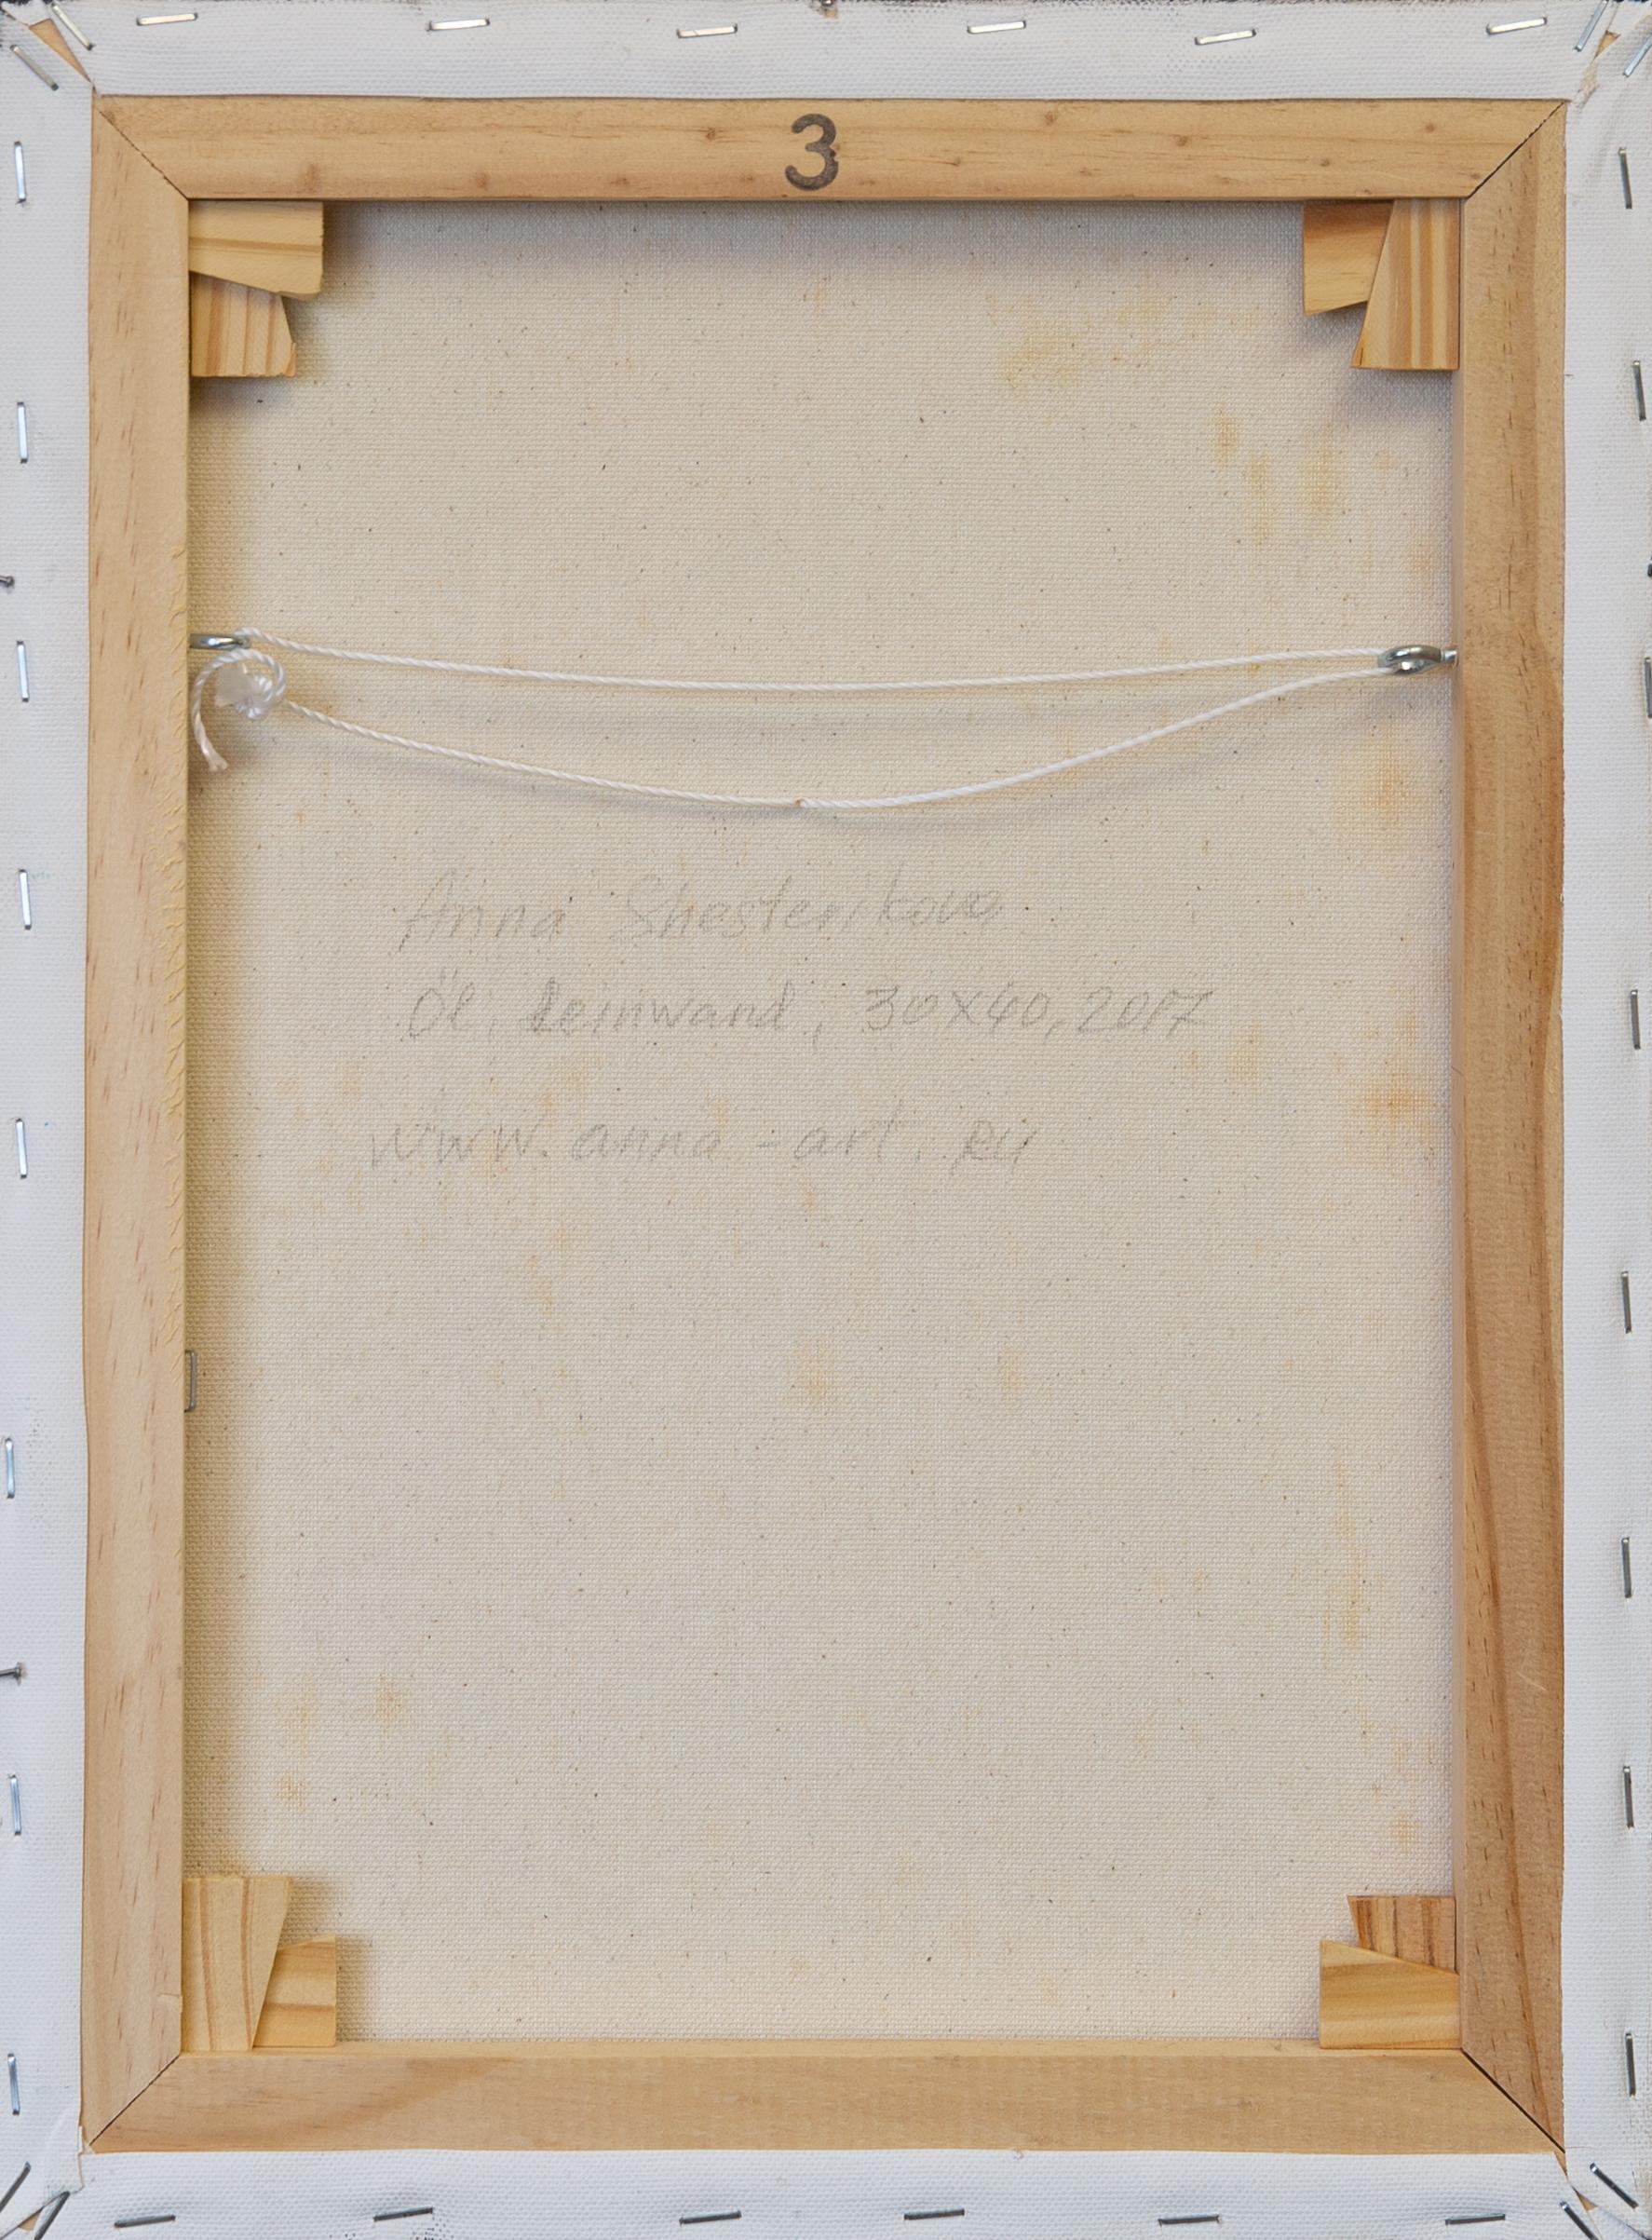 3
Anna Shesterikova
Öl, Leinwand, 30x40, 2017
www.anna-art.ru